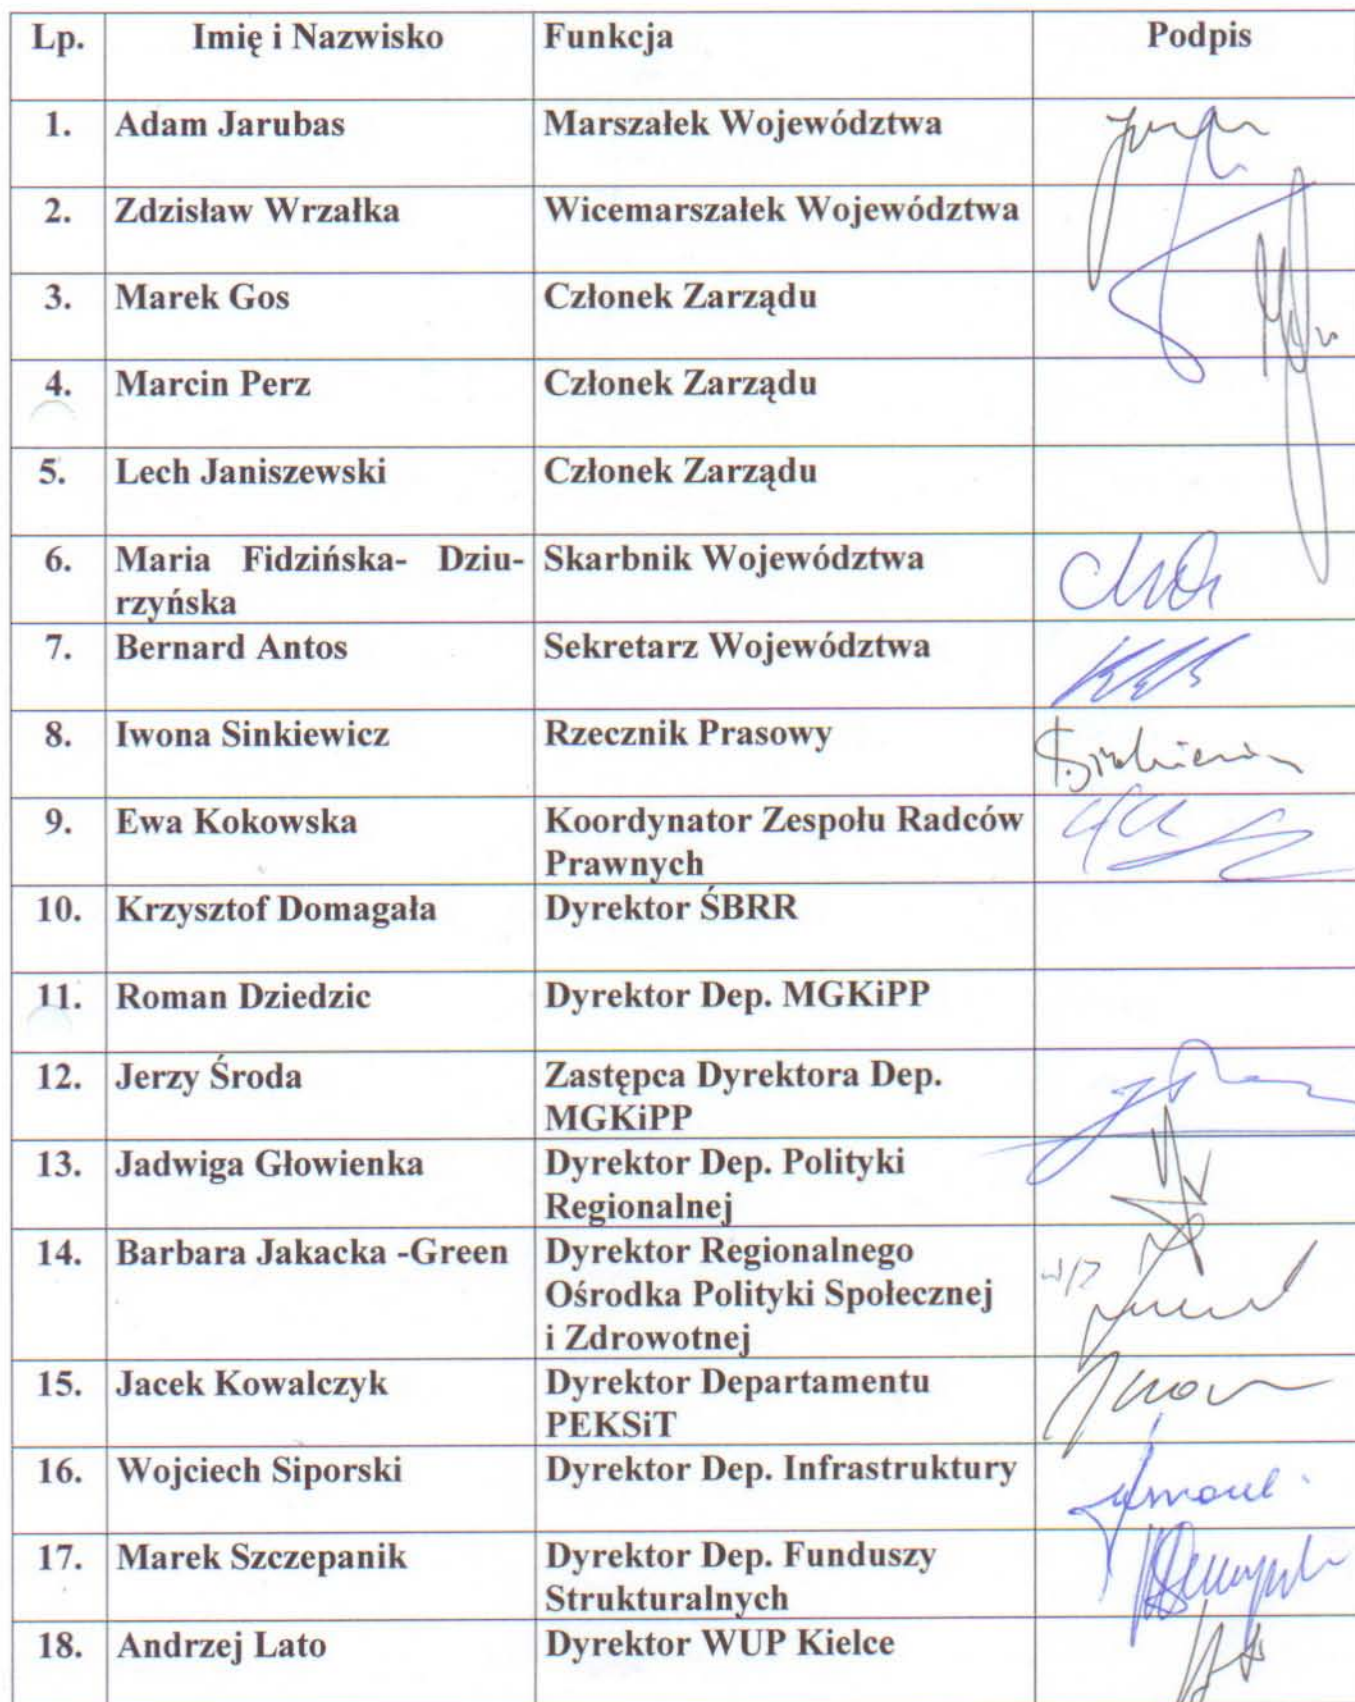 Lp. Imię i Nazwisko Funkcja Podpis
1. Adam Jarubas Marszałek Województwa
2. Zdzisław Wrzałka Wicemarszałek Województwa
3. Marek Gos Członek Zarządu
4. Marcin Perz Członek Zarządu
5. Lech Janiszewski Członek Zarządu
6. Maria Fidzińska- Dziu- Skarbnik Województwa
rzyńska
7. Bernard Antos Sekretarz Województwa
8. Iwona Sinkiewicz Rzecznik Prasowy
9. Ewa Kokowska Koordynator Zespołu Radców
Prawnych
10. Krzysztof Domagała Dyrektor ŚBRR
11. Roman Dziedzic Dyrektor Dep. MGKiPP
12. Jerzy Środa Zastępca Dyrektora Dep.
MGKiPP
13. Jadwiga Głowienka Dyrektor Dep. Polityki
Regionalnej
14. Barbara Jakacka -Green Dyrektor Regionalnego
Ośrodka Polityki Społecznej
i Zdrowotnej
15. Jacek Kowalczyk Dyrektor Departamentu
PEKSiT
16. Wojciech Siporski Dyrektor Dep. Infrastruktury
17. Marek Szczepanik Dyrektor Dep. Funduszy
Strukturalnych
18. Andrzej Lato Dyrektor WUP Kielce